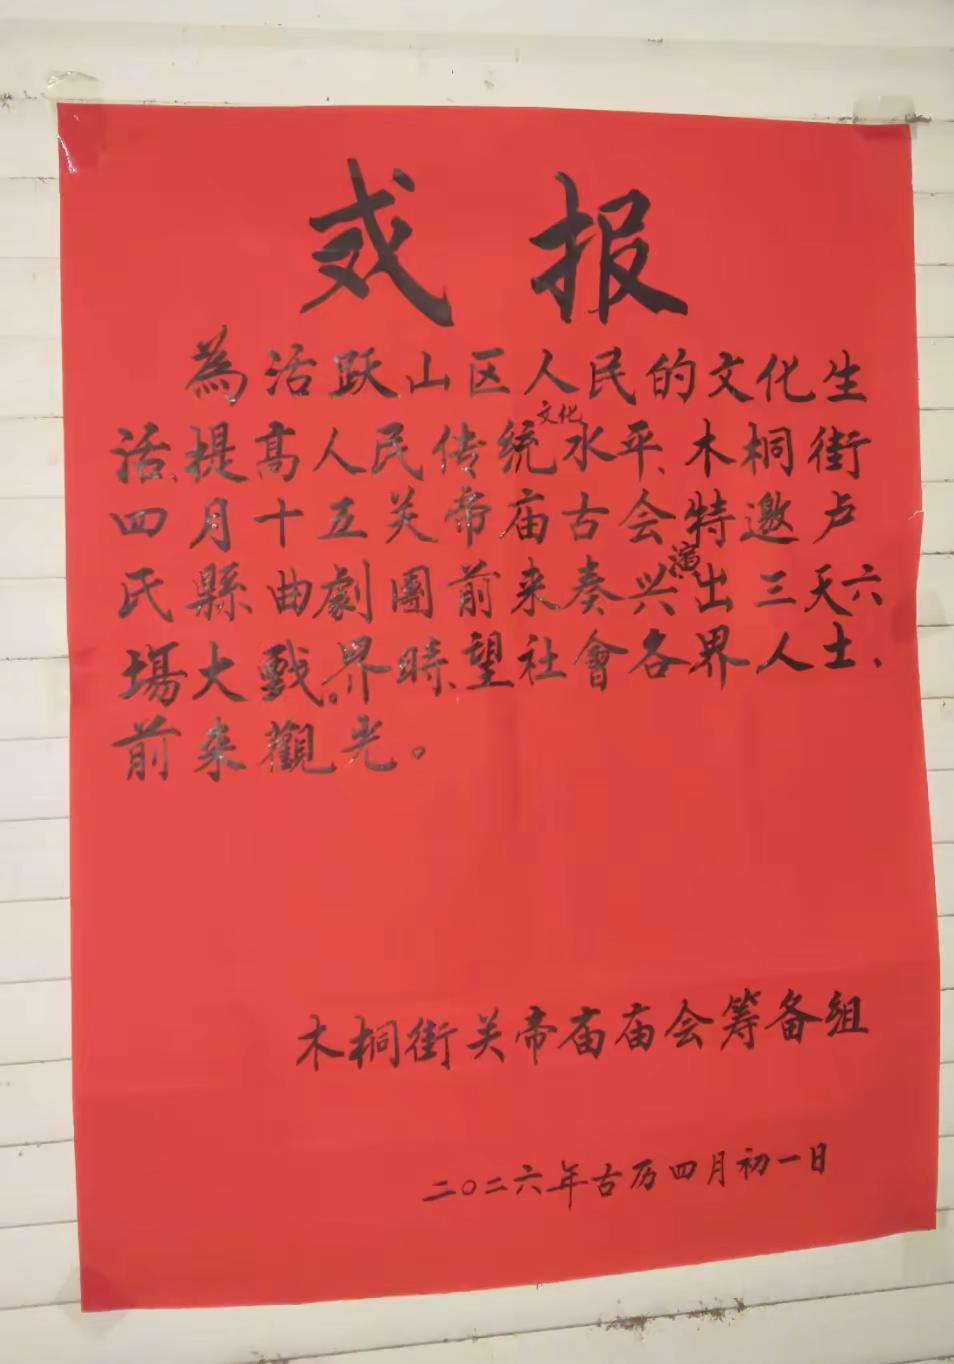 戏报
為活跃山区人民的文化生
活、提高人民传统文化水平、木桐街
四月十五关帝庙古会特邀卢
民縣曲劇團前来奏兴演出三天六
場大戲、界時、望社會各界人士、
前来觀光。
木桐街关帝庙庙会筹备组
二〇二六年古历四月初一日